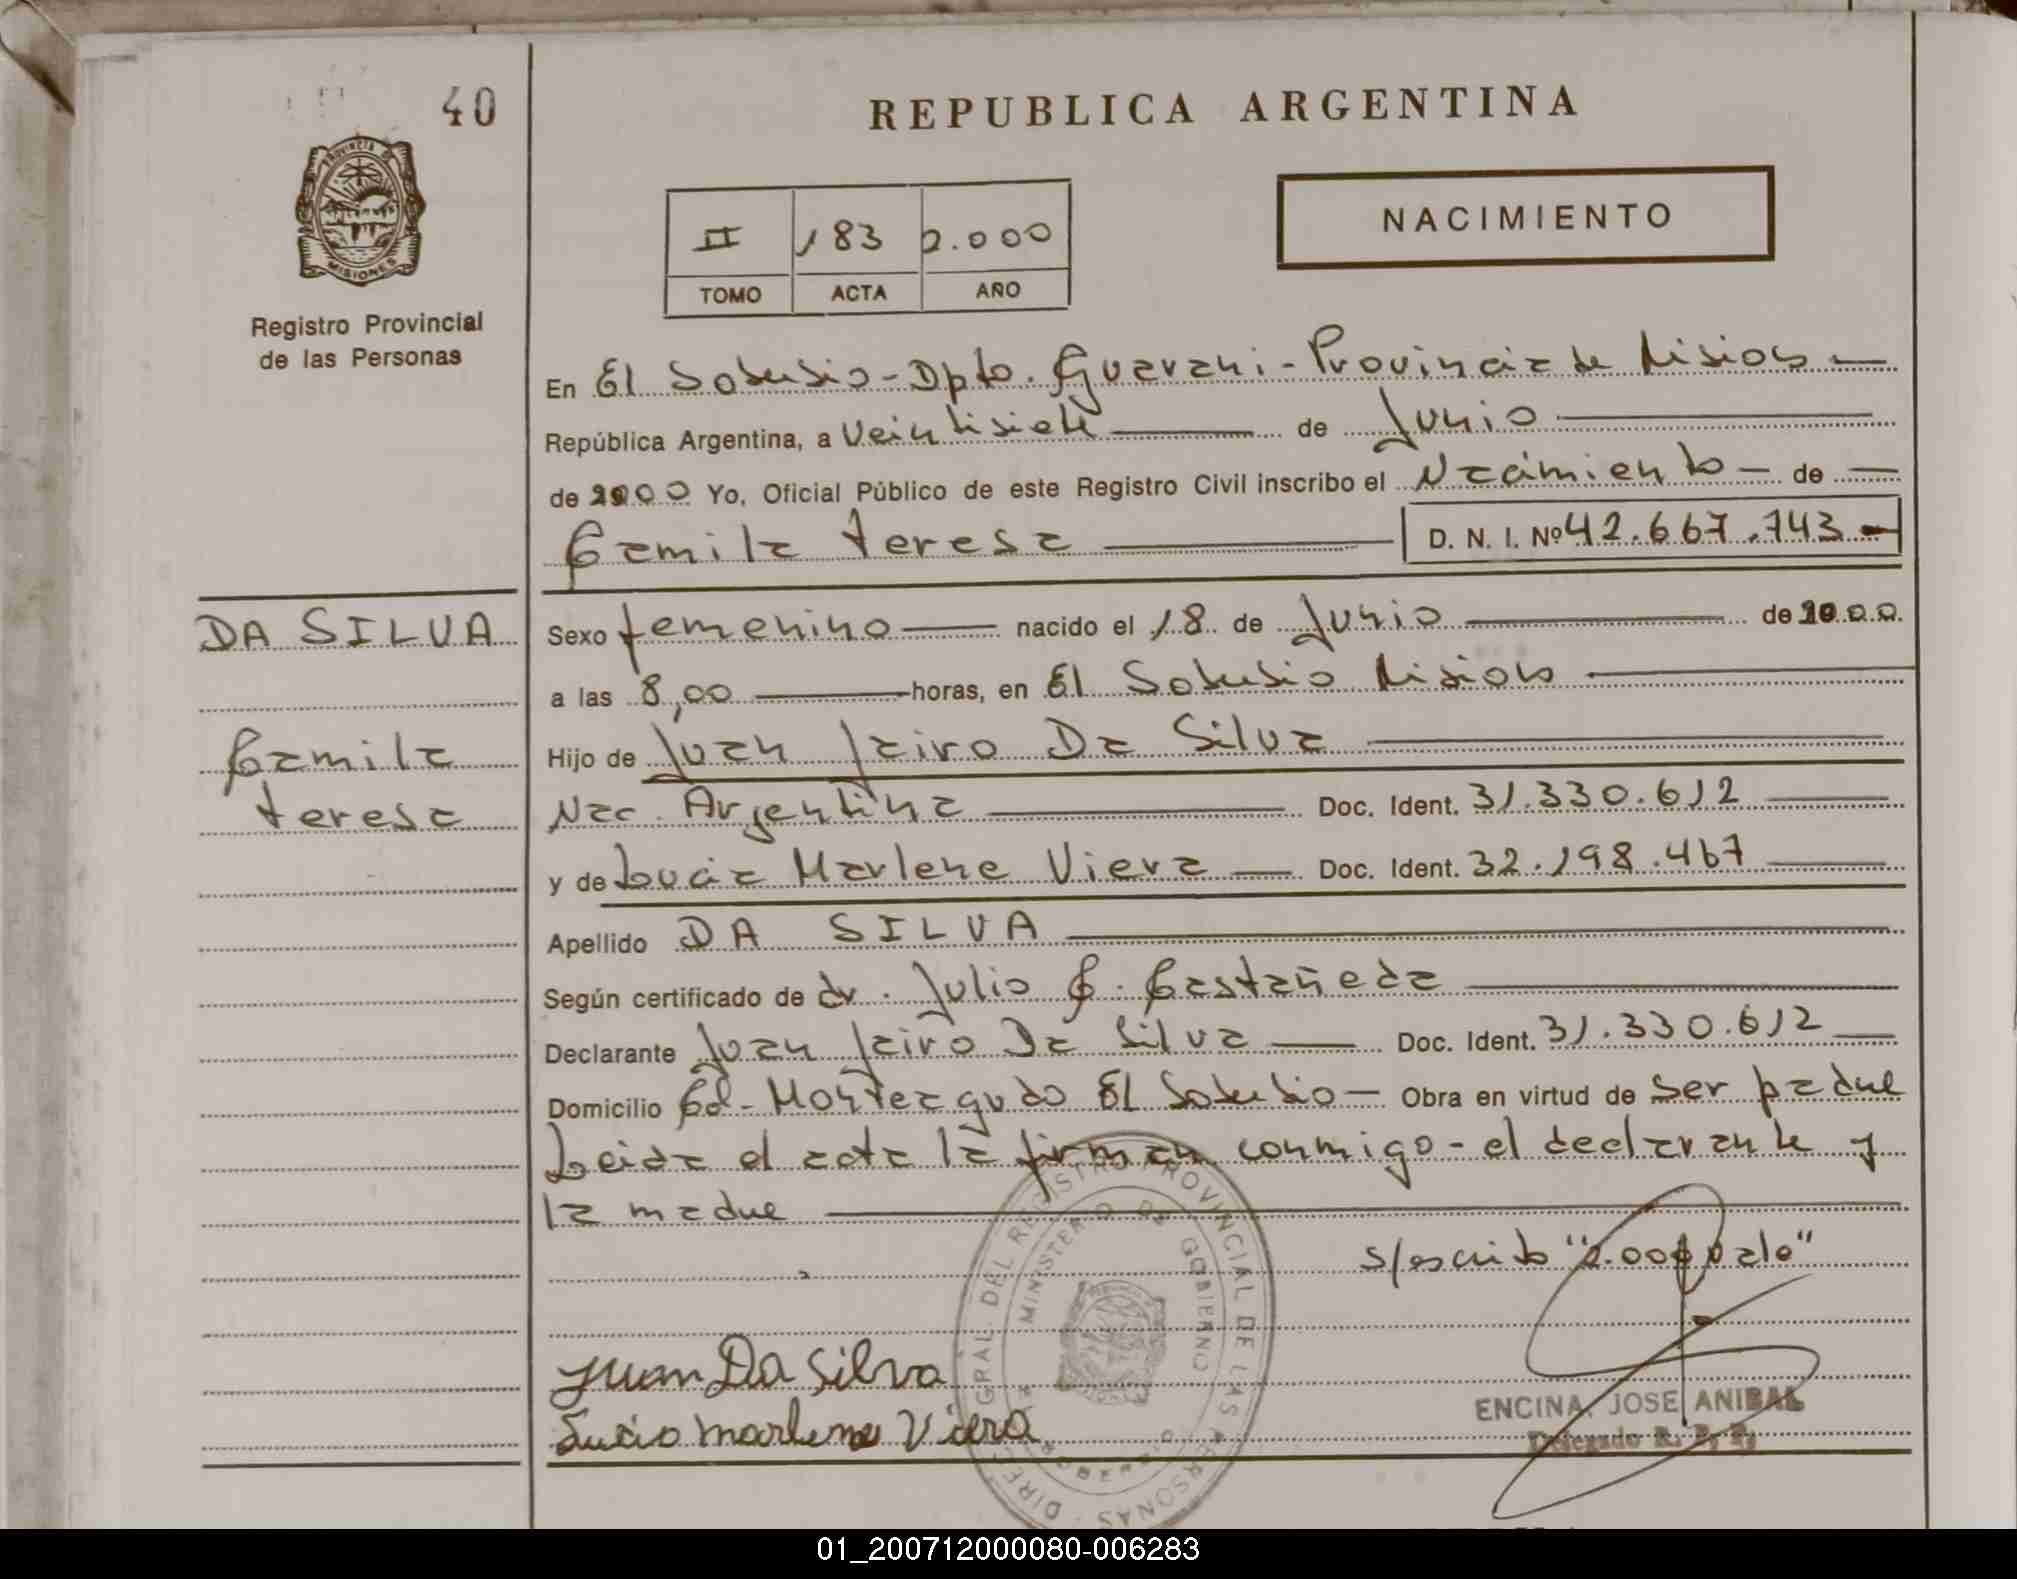 40
REPUBLICA ARGENTINA
PROVINCIA DE
MISIONES
Registro Provincial
de las Personas
II 183 2.000
TOMO ACTA AÑO
NACIMIENTO
En El Soberbio - Dpto. Guarani - Provincia de Misiones
República Argentina, a Veintisiete de Junio
de 2000 Yo, Oficial Público de este Registro Civil inscribo el Nacimiento de
Camila teresa D. N. I. Nº 42.667.743
DA SILVA
Camila
teresa
Sexo femenino nacido el 18 de Junio de 2000.
a las 8,00 horas, en El Soberbio Misiones
Hijo de Juan Jairo Da Silva
Nac. Argentina Doc. Ident. 31.330.612
y de Lucia Marlene Viera Doc. Ident. 32.198.467
Apellido DA SILVA
Según certificado de dr. Julio C. Castañeda
Declarante Juan Jairo Da Silva Doc. Ident. 31.330.612
Domicilio Col- Monteagudo El Soberbio - Obra en virtud de ser padre
Leida el acta la firman conmigo - el declarante y
la madre
s/escrito "2.000 vale"
Juan Da Silva
Lucia Marlene Viera
DIREC. GRAL. DEL REGISTRO PROVINCIAL DE LAS PERSONAS
MINISTERIO DE GOBIERNO
ENCINA, JOSE ANIBAL
Delegado R. P. P.
01_200712000080-006283